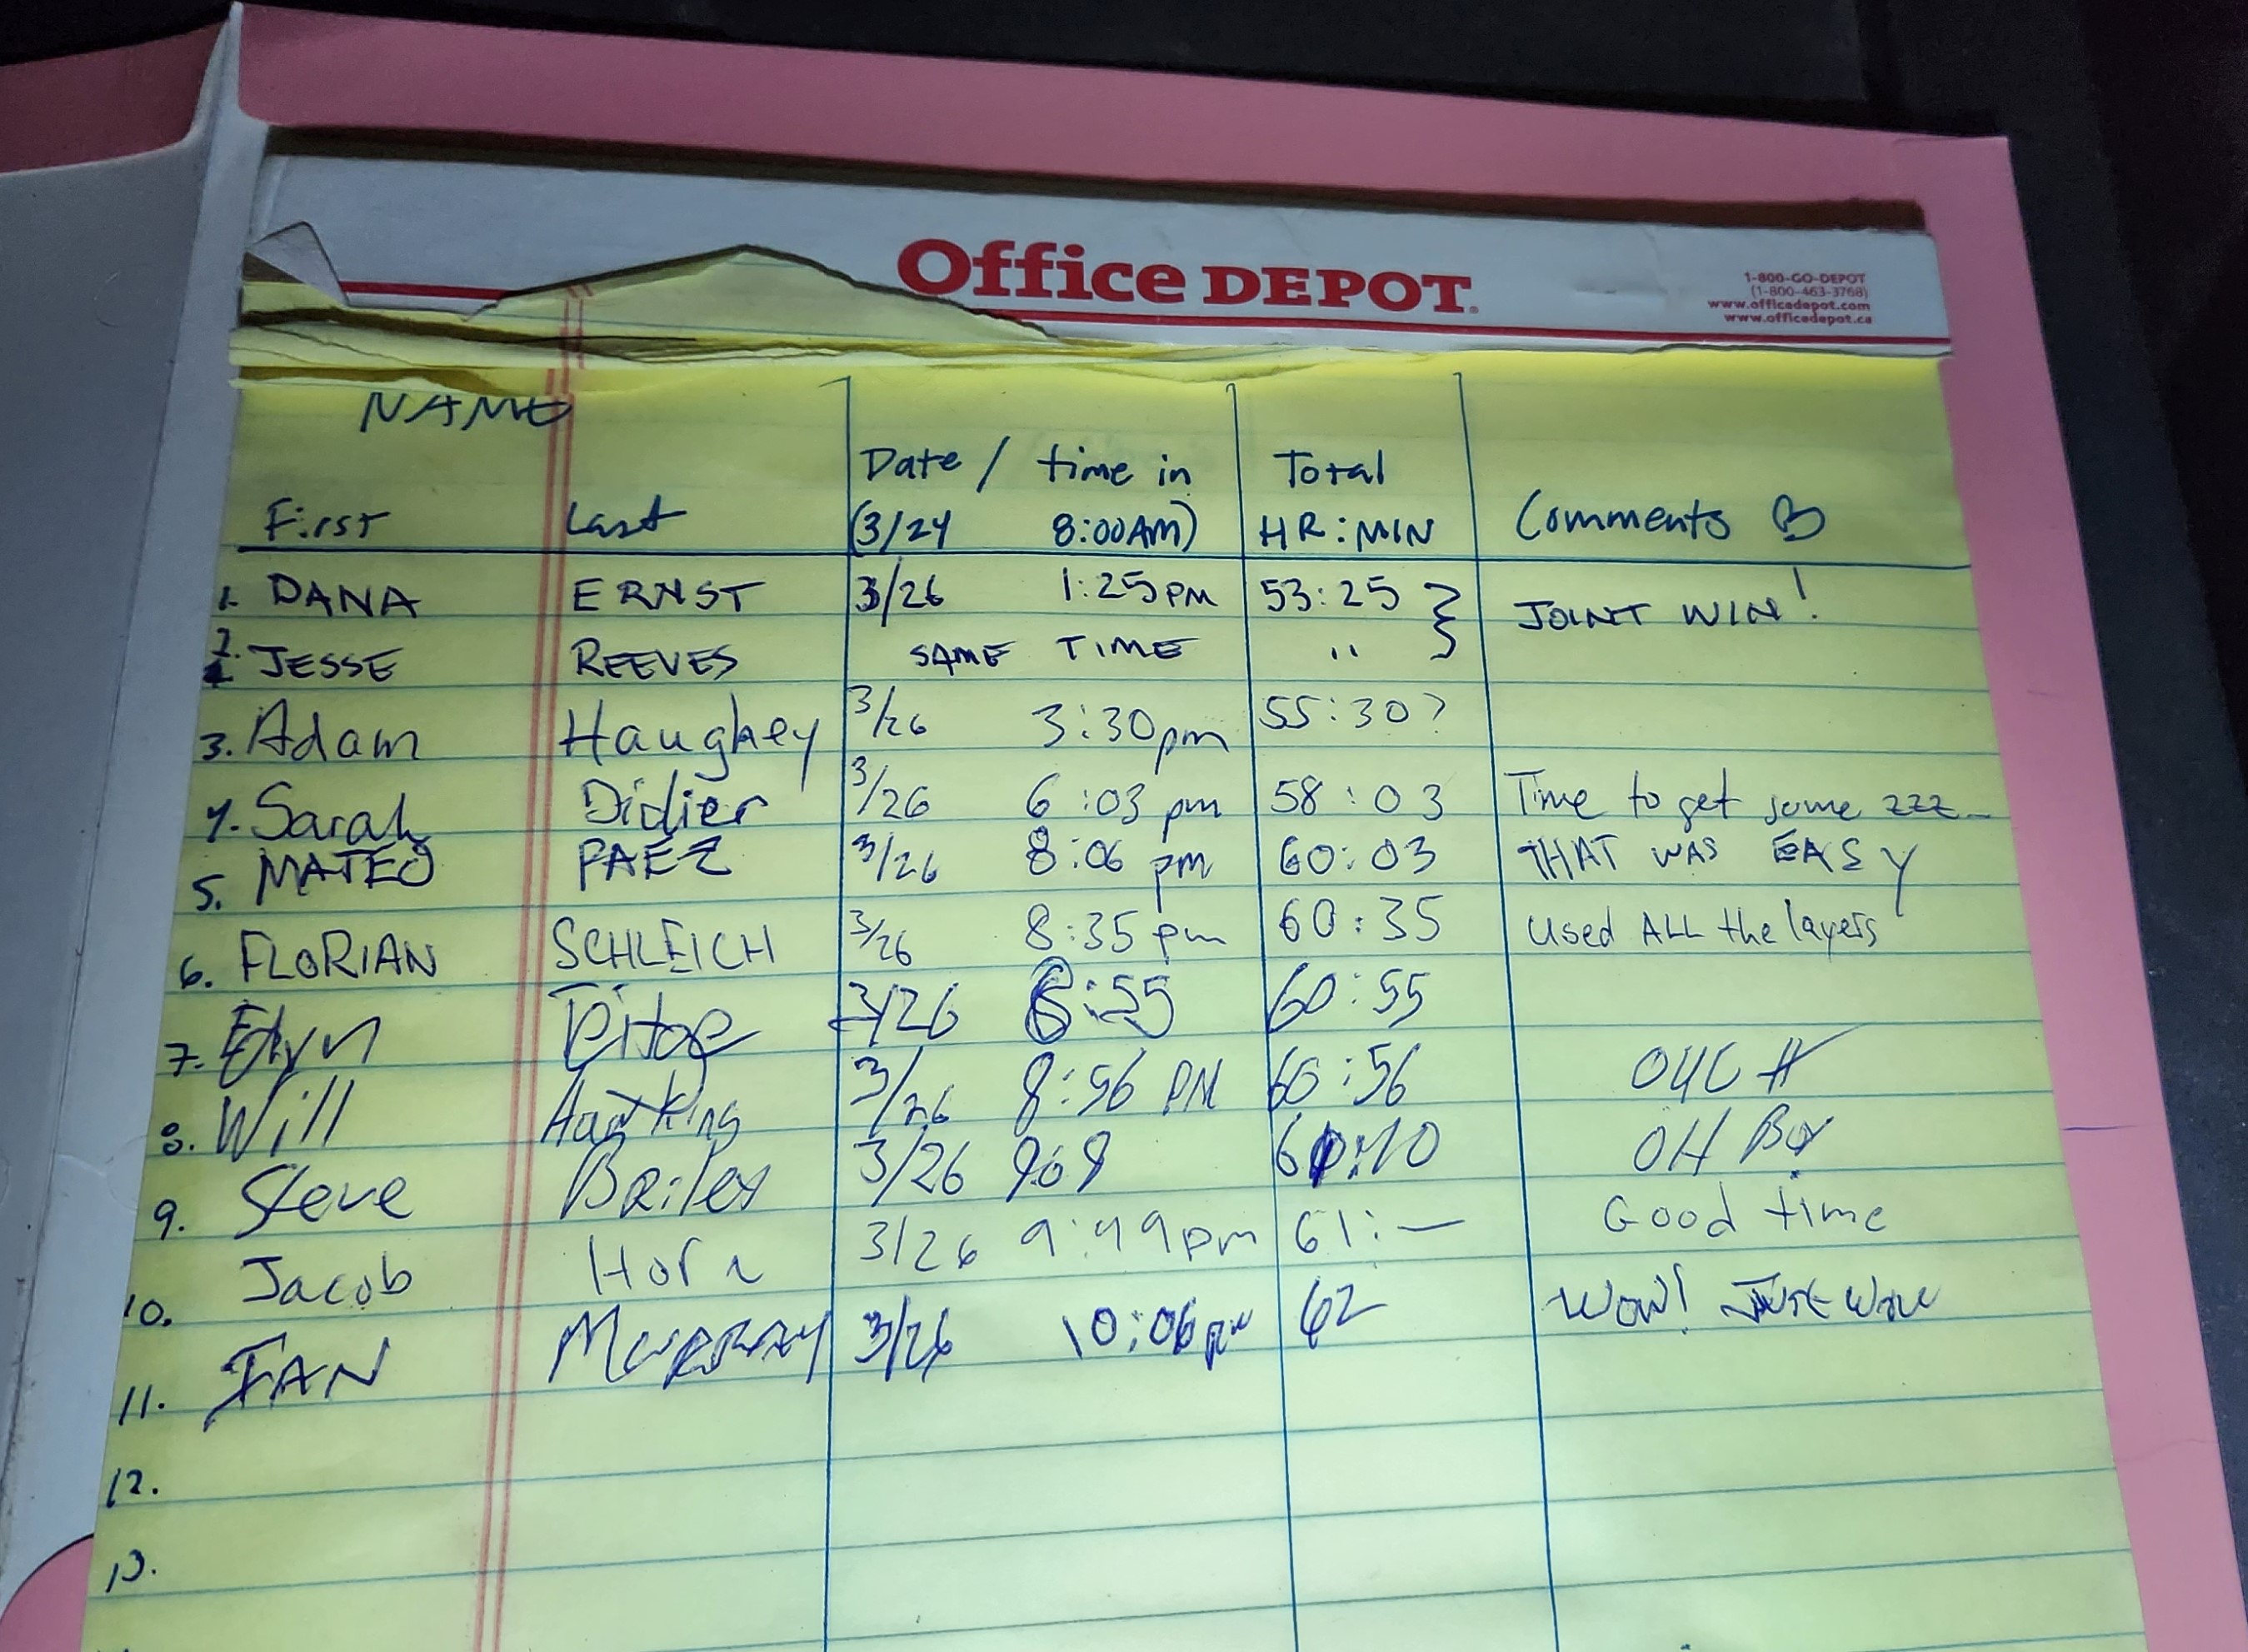 Office DEPOT.
1-800-GO-DEPOT
(1-800-463-3768)
www.officedepot.com
www.officedepot.ca
NAME
Date / time in Total
First Last (3/24 8:00AM) HR:MIN Comments
1. DANA ERNST 3/26 1:25PM 53:25 } JOINT WIN!
2. JESSE REEVES SAME TIME "
3. Adam Haughey 3/26 3:30pm 55:30?
4. Sarah Didier 3/26 6:03 pm 58:03 Time to get some zzz...
5. MATEO PAEZ 3/26 8:06 pm 60:03 THAT WAS EASY
6. FLORIAN SCHLEICH 3/26 8:35 pm 60:35 Used ALL the layers
7. 3/26 8:55 60:55
8. Will 3/26 8:56 PM 60:56 OUCH
9. Steve 3/26 909 61:10 OH BOY
10. Jacob Horn 3/26 9:49pm 61:— Good time
11. IAN MURRAY 3/26 10:06pm 62 WOW! JUST WOW
12.
13.